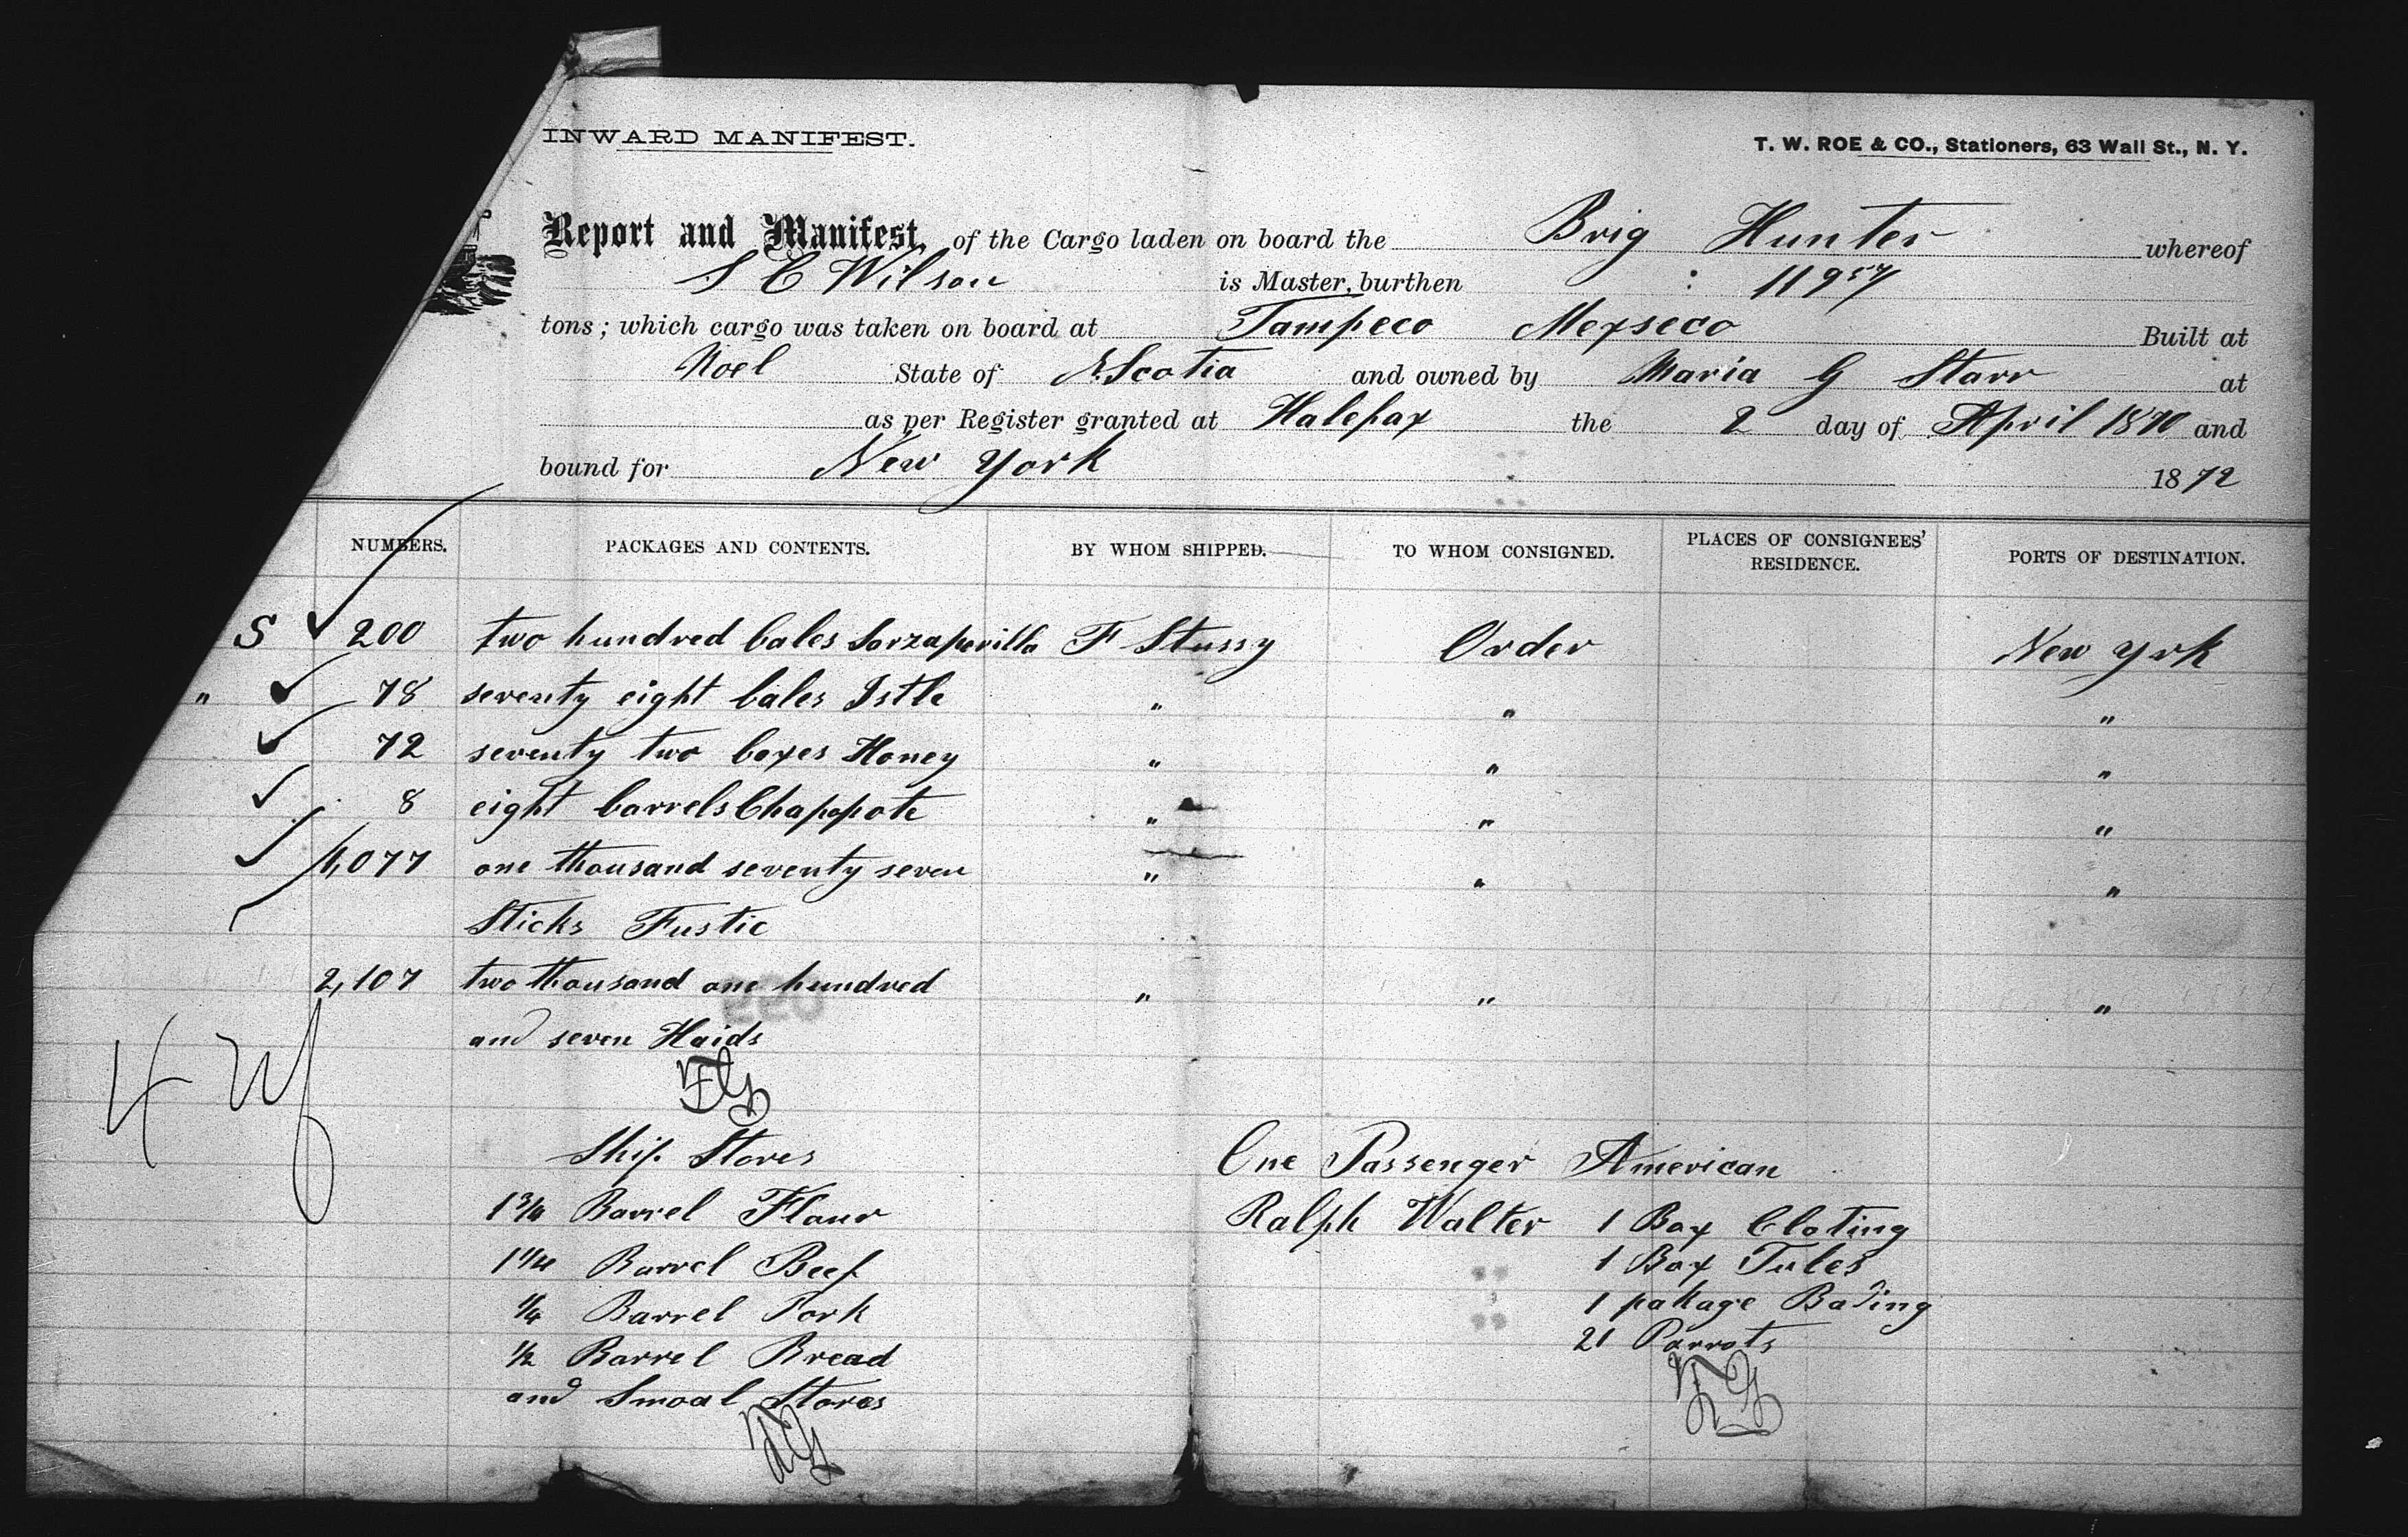 INWARD MANIFEST.
T. W. ROE & CO., Stationers, 63 Wall St., N. Y.
Report and Manifest, of the Cargo laden on board the Brig Hunter whereof
S C Wilson is Master, burthen : 119 57/
tons; which cargo was taken on board at Tampeco Mexseco Built at
Noel State of N.Scotia and owned by Maria G Starr at
as per Register granted at Halefax the 2 day of April 1870 and
bound for New York 1872
NUMBERS. PACKAGES AND CONTENTS. BY WHOM SHIPPED. TO WHOM CONSIGNED. PLACES OF CONSIGNEES' RESIDENCE. PORTS OF DESTINATION.
S 200 two hundred bales Sorzaperilla F Stussy Order New Yrk
" 78 seventy eight bales Istle " " "
72 seventy two boxes Honey " " "
8 eight barrels Chapopote " " "
1,077 one thousand seventy seven " " "
Sticks Fustic
2,107 two thousand one hundred " " "
and seven Haids
Ship Stores One Passenger American
1 3/4 Barrel Flour Ralph Walter 1 Box Cloting
1 1/4 Barrel Beef 1 Box Tules
1/4 Barrel Pork 1 pakage Bading
1/2 Barrel Bread 21 Parrots
and Smoal Stores